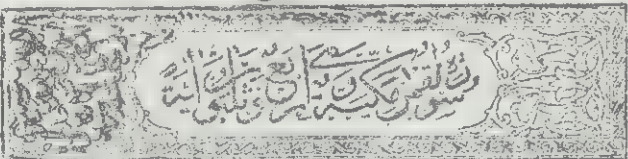 سورة لقمن مكية وهى اربع وثلثون اية